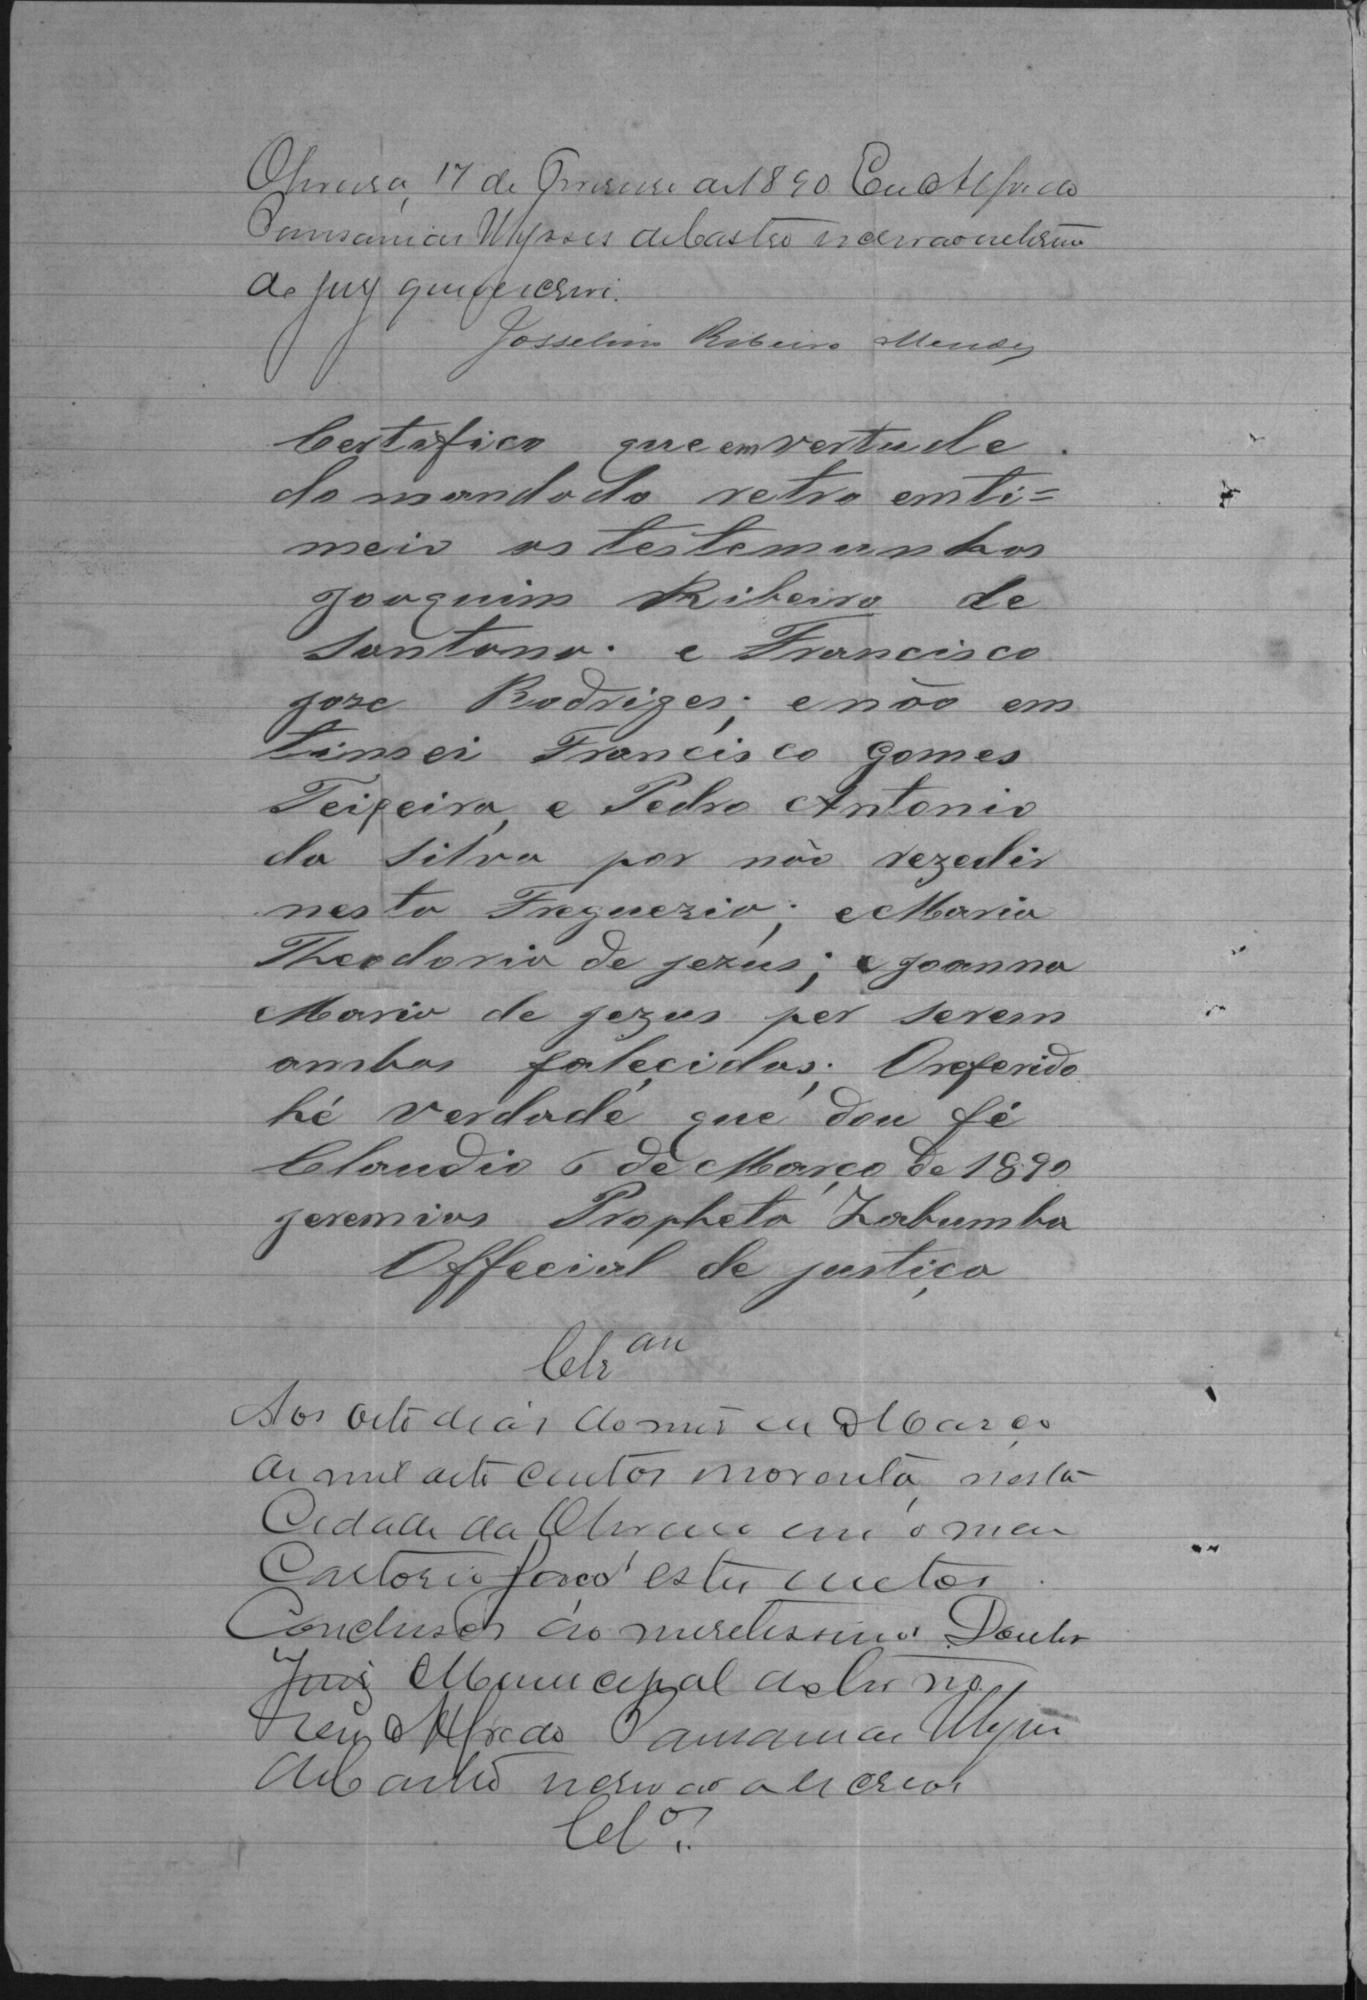 Oliveira, 17 de Fevereiro de 1890. Eu Alfredo
Pausanias Ulysses de Castro escrivão
de Juiz que o escrevi.
Josselino Ribeiro Mendes
Certifico que em vertude
do mandado retro emti=
meio as testemunhas
Joaquim Ribeiro de
Santana. e Francisco
joze Rodriges; e não em
timei Francisco Gomes
Teixeira, e Pedro Antonio
da Silva por não rezedir
nesta Freguezia; e Maria
Theodoria de jezus; e joanna
Maria de jezus per serem
ambas falecidas; O referido
hé verdade que dou fé
Claudio 6 de Março de 1890
jeremias Propheta Zabumba
Offecial de justiça
Clzam
Aos oito dias do mes de Março
de mil oito centos noventa, nesta
Cidade da Oliveira em o meu
Cartorio faço estes autos
Conclusos ao meretissimo Doutor
Juiz Municipal do termo
Eu Alfredo Pausanias Ulysses
de Castro escrivão o escrevi
Cls.